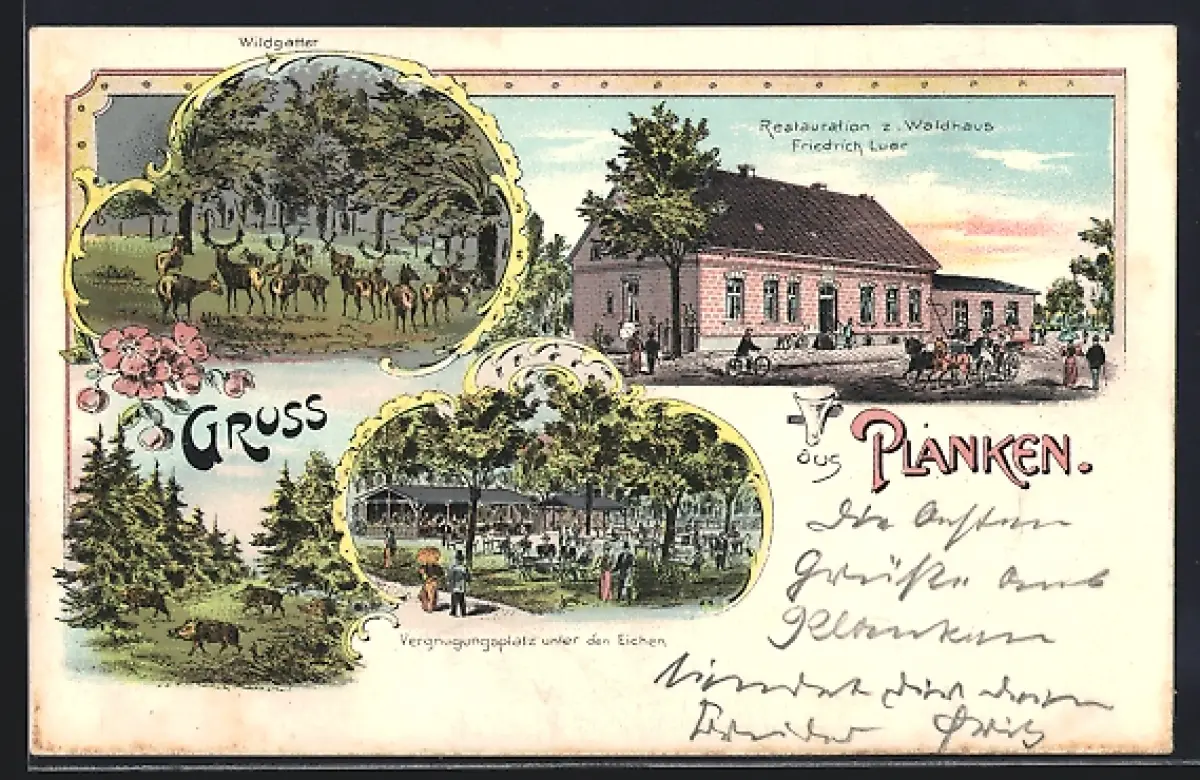 Wildgatter
Restauration z. Waldhaus
Friedrich Luer
GRUSS
aus PLANKEN.
Vergnugungsplatz unter den Eichen
Die besten
Grüße aus
Planken
sendet dir dein
Bruder Fritz